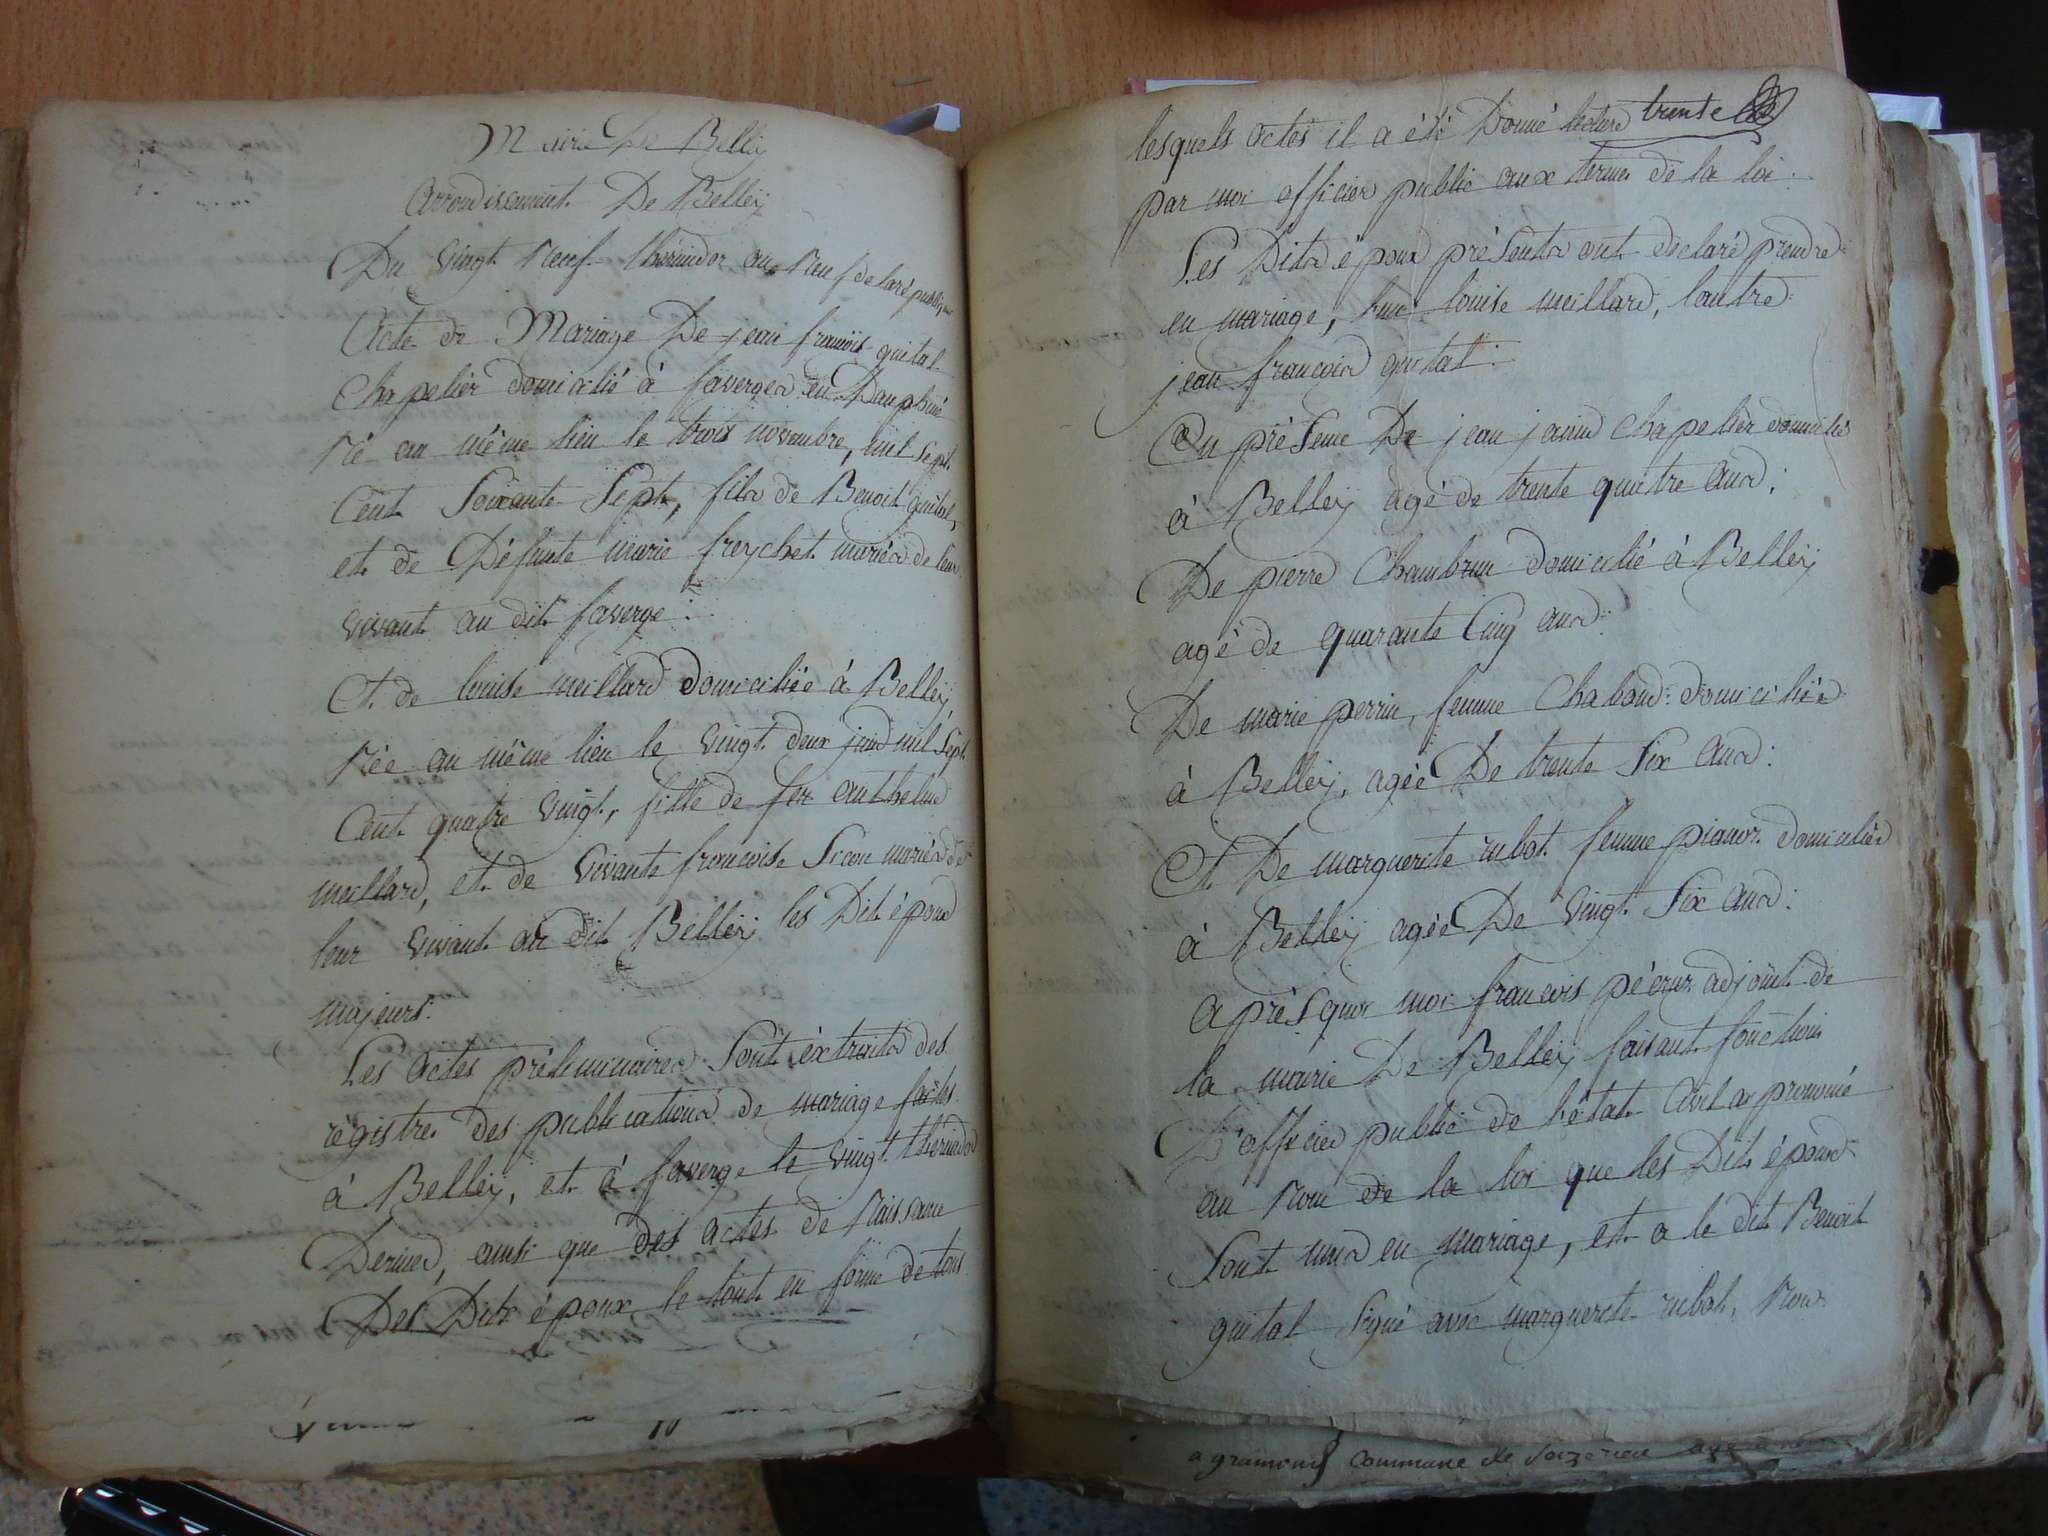 Mairie De Belleÿ
Arrondissement De Belleÿ
Du vingt neuf thermidor an neuf de la republique
Acte de Mariage De jean françois guital
Chapelier domicilié à faverges en Dauphiné
né au même lieu le trois novembre, mil sept
Cent Soixante Sept, fils de Benoit guital,
et de Défunte marie freychet mariés de leur
vivant au dit faverge :
Et de louise meillard domiciliée à Belleÿ,
née au même lieu le vingt deux juin mil sept
Cent quatre vingt, fille de feu anthelme
meillard, et de vivante françoise Sicon mariés de
leur vivant au dit Belleÿ les Dit époux
majeurs :
Les actes préliminaires Sont éxtraits des
régistres des publications de mariage faites
à Belleÿ, et à faverge le vingt thermidor
Dernier, ainsi que des actes de Naissance
Des Dits époux le tout en forme de tous
trente
lesquels actes il a été Donné lecture
par moi officier public aux termes de la loi.
Les Dits époux présents ont déclaré prendre
en mariage, l'une louise meillard, l'autre
jean françois guital :
En présence De jean janin chapelier domicilié
à Belleÿ agé de trente quatre ans ;
De pierre Chambrun domicilié à Belleÿ
agé de quarante Cinq ans :
De marie perrin, femme Chaboud domiciliée
à Belleÿ, agée De trente Six ans :
Et De marguerite rubot femme domiciliée
à Belleÿ agée De vingt Six ans :
après quoi moi françois adjoint de
la mairie De Belleÿ faisant fonctions
D'officier public de l'état Civil ai prononcé
au nom de la loi que les Dit époux
Sont unis en mariage, et a le dit Benoit
guital Signé avec marguerite rubot, non
commune de